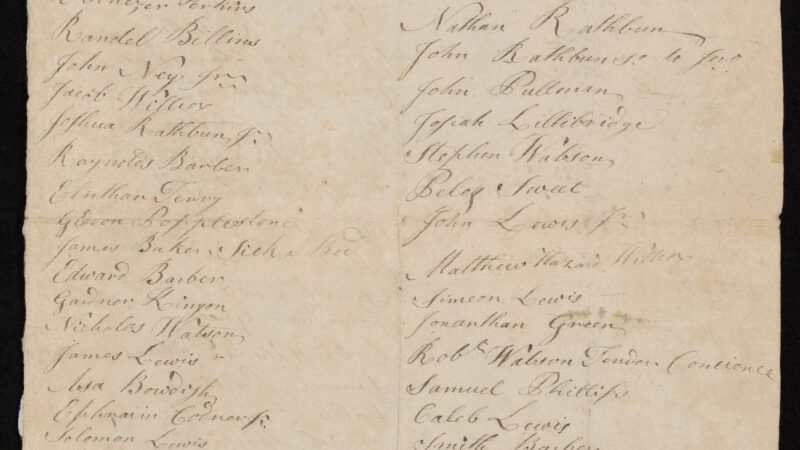 Ebenezer Perkins
Randel Billins
John Ney Jrn
Jacob Willcox
Joshua Rathbun Jr
Raynolds Barber
Elnthan Terry
Gideon Popplestone
James Baker Sick a Bed
Edward Barber
Gardner Kinyon
Nicholas Watson
James Lewis
Asa Bowdish
Ephraim Codner Jr
Solomon Lewis
Nathan Rathbun
John Rathbun to Jno
John Pullman
Josiah Lillibridge
Stephen Watson
Peleg Sweet
John Lewis Jr
Matthew Hazard Willcox
Simeon Lewis
Jonanthan Green
Robt Watson Tender Contience
Samuel Phillips
Caleb Lewis
Smith Barber